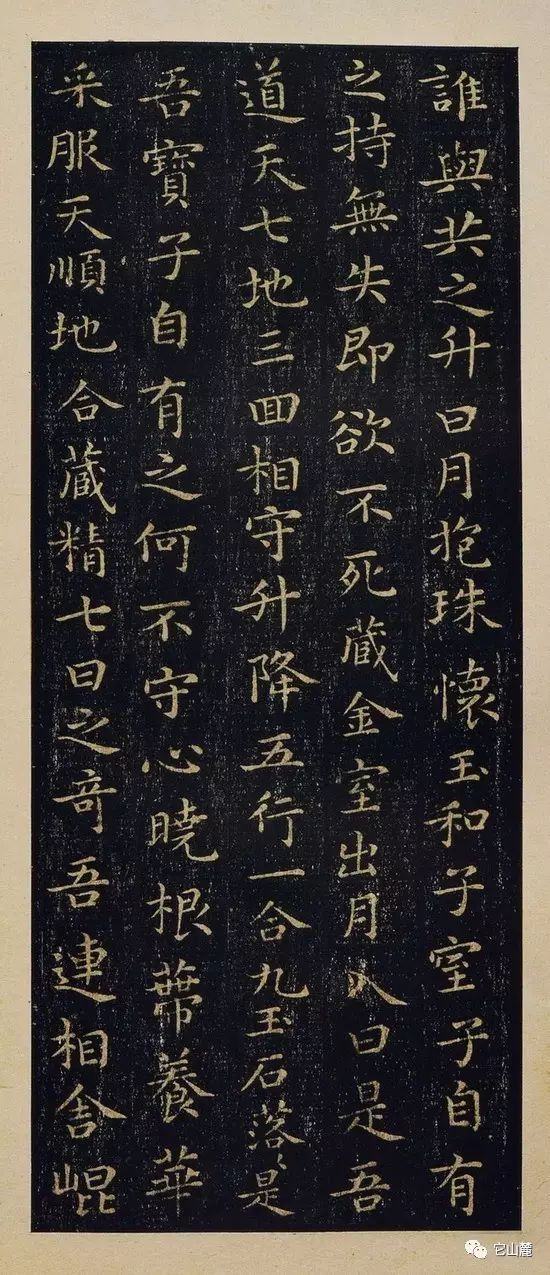 誰與共之升日月抱珠懷玉和子室子自有
之持無失即欲不死藏金室出月入日是吾
道天七地三回相守升降五行一合九玉石落〻是
吾寶子自有之何不守心曉根蔕養華
采服天順地合藏精七日之奇吾連相舍崐
它山麓